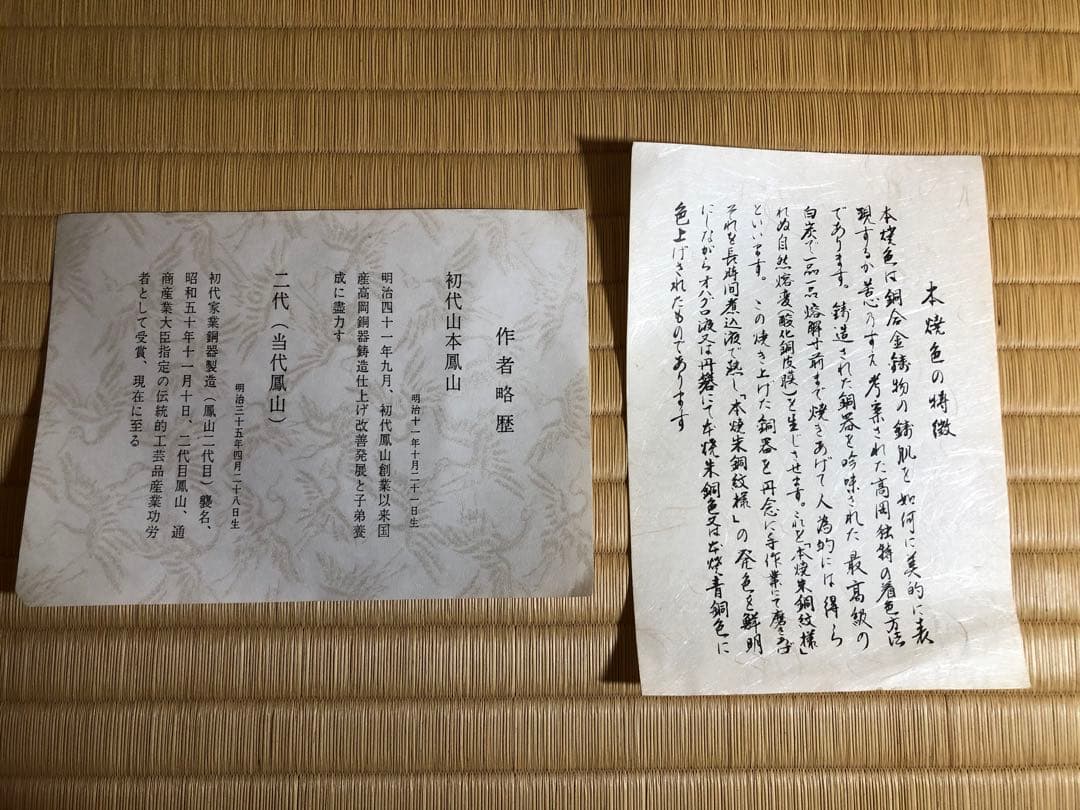 作者略歴
初代山本鳳山
明治十一年十月二十一日生
明治四十一年九月、初代鳳山創業以来国
産高岡銅器鋳造仕上げ改善発展と子弟養
成に盡力す
二代（当代鳳山）
明治三十五年四月二十八日生
初代家業銅器製造（鳳山二代目）襲名、
昭和五十年十一月十日、二代目鳳山、通
商産業大臣指定の伝統的工芸品産業功労
者として受賞、現在に至る
本焼色の特徴
本焼色は銅合金鋳物の鋳肌を如何に美的に表
現するか苦心のすえ考案された高岡独特の着色方法
であります。鋳造された銅器を吟味された最高級の
白炭で一品一品熔解寸前まで焼きあげて人為的には得ら
れぬ自然熔変(酸化銅皮膜)を生じさせます。これを「本焼朱銅紋様」
といいます。この焼き上げた銅器を丹念に手作業にて磨きあげ
それを長時間煮込液で熱し「本焼朱銅紋様」の発色を鮮明
にしながらオハグロ液又は丹礬にて本焼朱銅色又は本焼青銅色に
色上げされたものであります